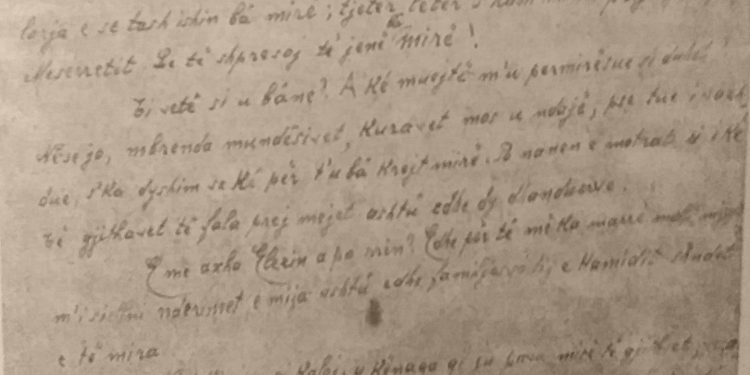 e se tash ishin bâ mirë; tjetër letër s'kam
Meserretit. Le të shpresoj të jenë mirë!
Ti vetë si u bâne? A ké muejtë m'u permirësue si duhet?
Nëse jo, mbrenda mundësivet, kuravet mos u ndajë, pse tue i
due, s'ka dyshim se ké për t'u bâ krejt mirë. Po nanen e motrat si i ké
Të gjithavet të fala prej mejet ashtû edhe dy
E me axha a po rrin? Edhe për të më ka marrë
m'i siellni nderimet e mija ashtû edhe familjes tij e Hamidit shndet
e të mira
u Kënaqa qi ju mirë të gjithvet,